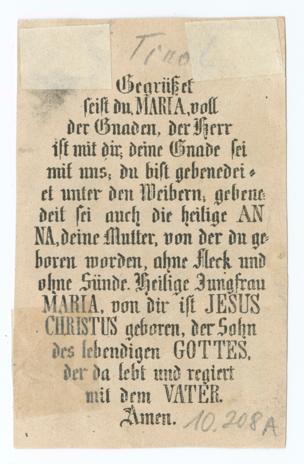 Tirol
Gegrüßet
seist du, MARIA, voll
der Gnaden, der Herr
ist mit dir; deine Gnade sei
mit uns; du bist gebenedei=
et unter den Weibern; gebene
deit sei auch die heilige AN
NA, deine Mutter, von der du ge-
boren worden, ohne Fleck und
ohne Sünde. Heilige Jungfrau
MARIA, von dir ist JESUS
CHRISTUS geboren, der Sohn
des lebendigen GOTTES,
der da lebt und regiert
mit dem VATER.
Amen.
10.208A